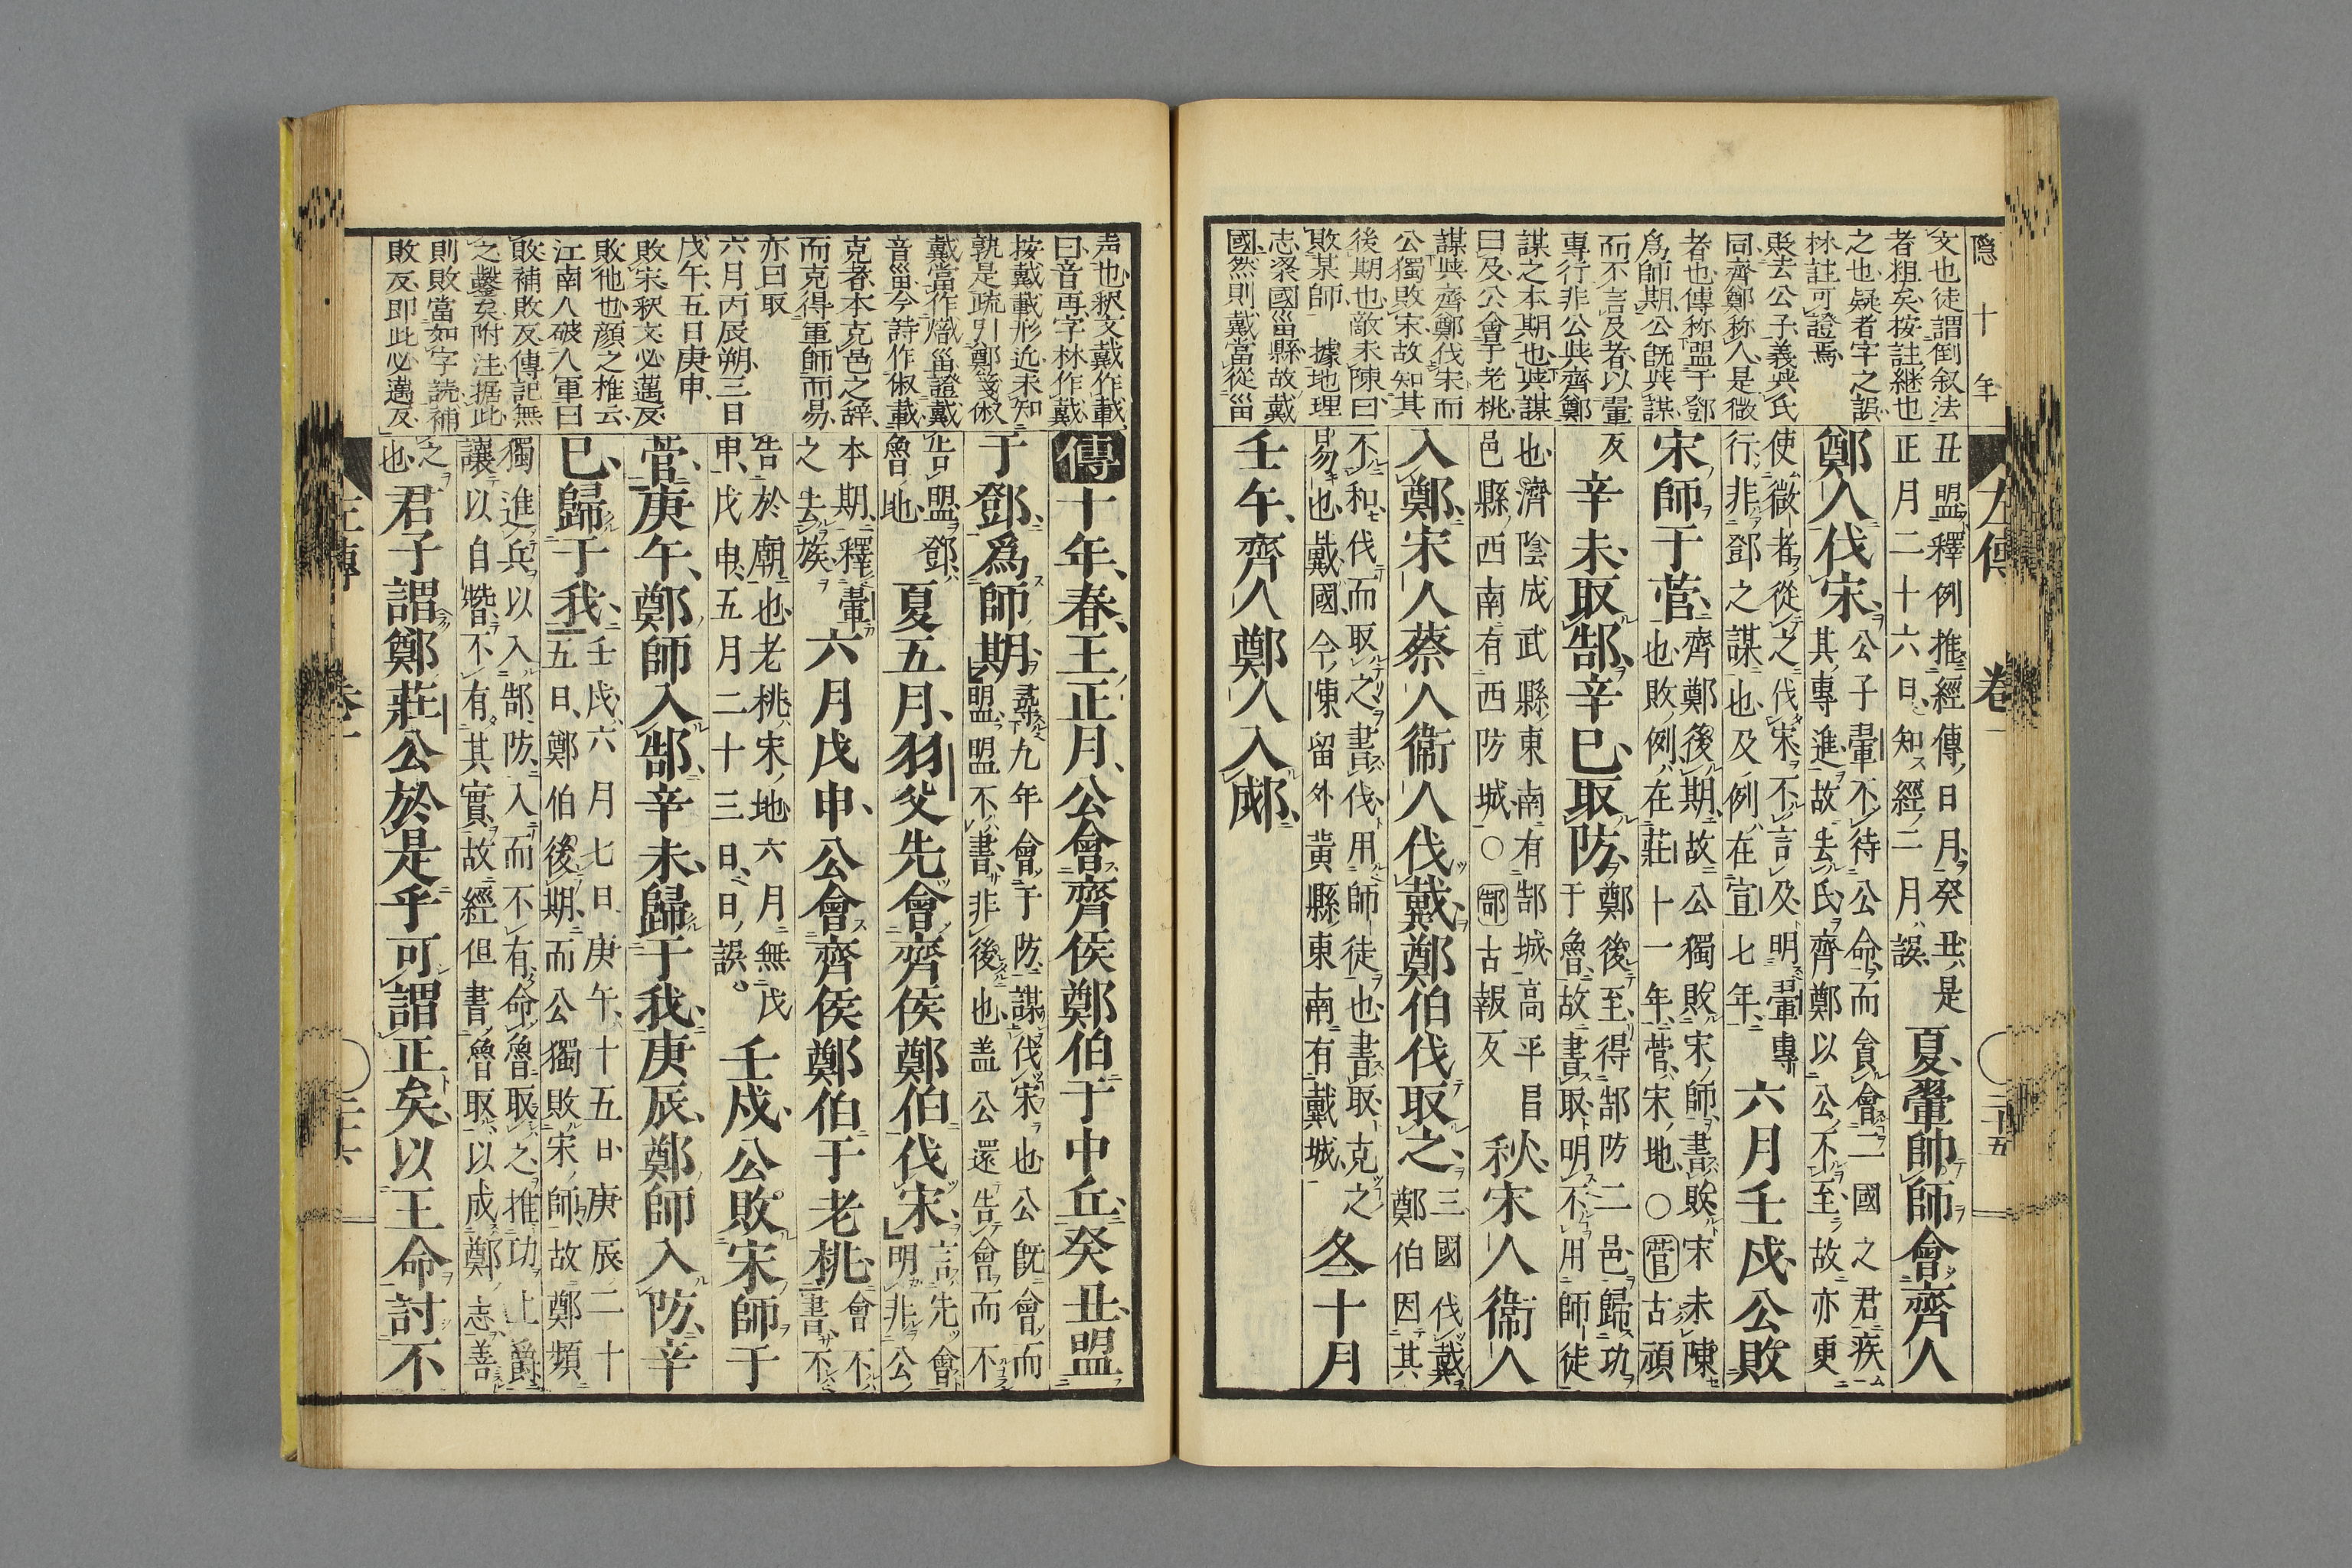 隱十年
文也徒謂倒叙法
者粗矣按註継也
之也疑者字之誤
林註可證焉
貶去公子義與氏
同齊鄭称人是微
者也傳称盟于鄧
爲師期公既與謀
而不言及者以翬
專行非公與齊鄭
謀之本期也與謀
曰及公會于老桃
謀與齊鄭伐宋而
公獨敗宋故知其
後期也敵未陳曰
敗某師 據地理
志梁國甾縣故戴
國然則戴當從甾
左傳 卷一 二十五
丑盟釋例推經傳日月癸丑是
正月二十六日知經二月誤
夏翬帥師會齊人
鄭人伐宋
公子翬不待公命而貪會二國之君疾
其專進故去氏齊鄭以公不至故亦更
使微者從之伐宋不言及明翬專
行非鄧之謀也及例在宣七年
六月壬戌公敗
宋師于菅
齊鄭後期故公獨敗宋師書敗宋未陳
也敗例在莊十一年菅宋地○菅古頑
反
辛未取郜辛巳取防
鄭後至得郜防二邑歸功
于魯故書取明不用師徒
也濟陰成武縣東南有郜城高平昌
邑縣西南有西防城○郜古報反
秋宋人衞人
入鄭宋人蔡人衞人伐戴鄭伯伐取之
三國伐戴
鄭伯因其
不和伐而取之書伐用師徒也書取克之
易也戴國今陳留外黃縣東南有戴城
冬十月
壬午齊人鄭人入郕
声也釈文戴作載
曰音再字林作戴
按戴載形近未知
孰是疏引鄭箋俶
載當作熾甾證戴
音甾今詩作俶載
克者本克邑之辞
而克得軍師而易
亦曰取
六月丙辰朔三日
戊午五日庚申
敗宋釈文必邁反
敗他也顔之推云
江南人破人軍曰
敗補敗反傳記無
之鑿矣附注据此
則敗當如字読補
敗反即此必邁反
傳十年春王正月公會齊侯鄭伯于中丘癸丑盟
于鄧爲師期
尋九年會于防謀伐宋也公既會而
盟盟不書非後也盖公還告會而不
告盟鄧
魯地
夏五月羽父先會齊侯鄭伯伐宋
言先會
明非公
本期釋翬
之去族
六月戊申公會齊侯鄭伯于老桃
會不
書不
告於廟也老桃宋地六月無戊
申戊申五月二十三日日誤
壬戌公敗宋師于
菅庚午鄭師入郜辛未歸于我庚辰鄭師入防辛
巳歸于我
壬戌六月七日庚午十五日庚辰二十
五日鄭伯後期而公獨敗宋師故鄭頻
獨進兵以入郜防入而不有命魯取之推功上爵
讓以自替不有其實故經但書魯取以成鄭志善
之
也
君子謂鄭莊公於是乎可謂正矣以王命討不